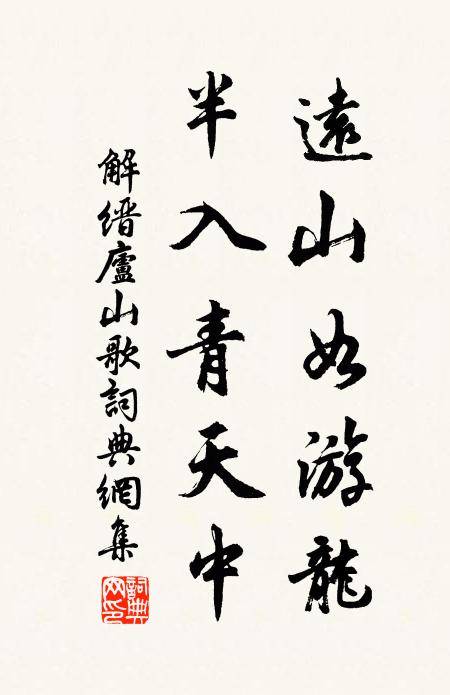 遠山如游龍
半入青天中
解縉廬山歌詞典網集
詞典網印